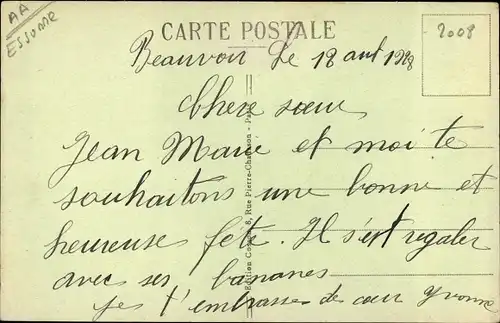 AA
ESSOMRE
CARTE POSTALE
2008
Beauvoir Le 18 aout 1928
Chere sœur
Jean Marie et moi te
souhaitons une bonne et
heureuse fete. Il s'est regaler
avec ses bananes
je t'embrasse de cœur Yvonne
Edition 8, Rue Pierre-Chausson - Paris